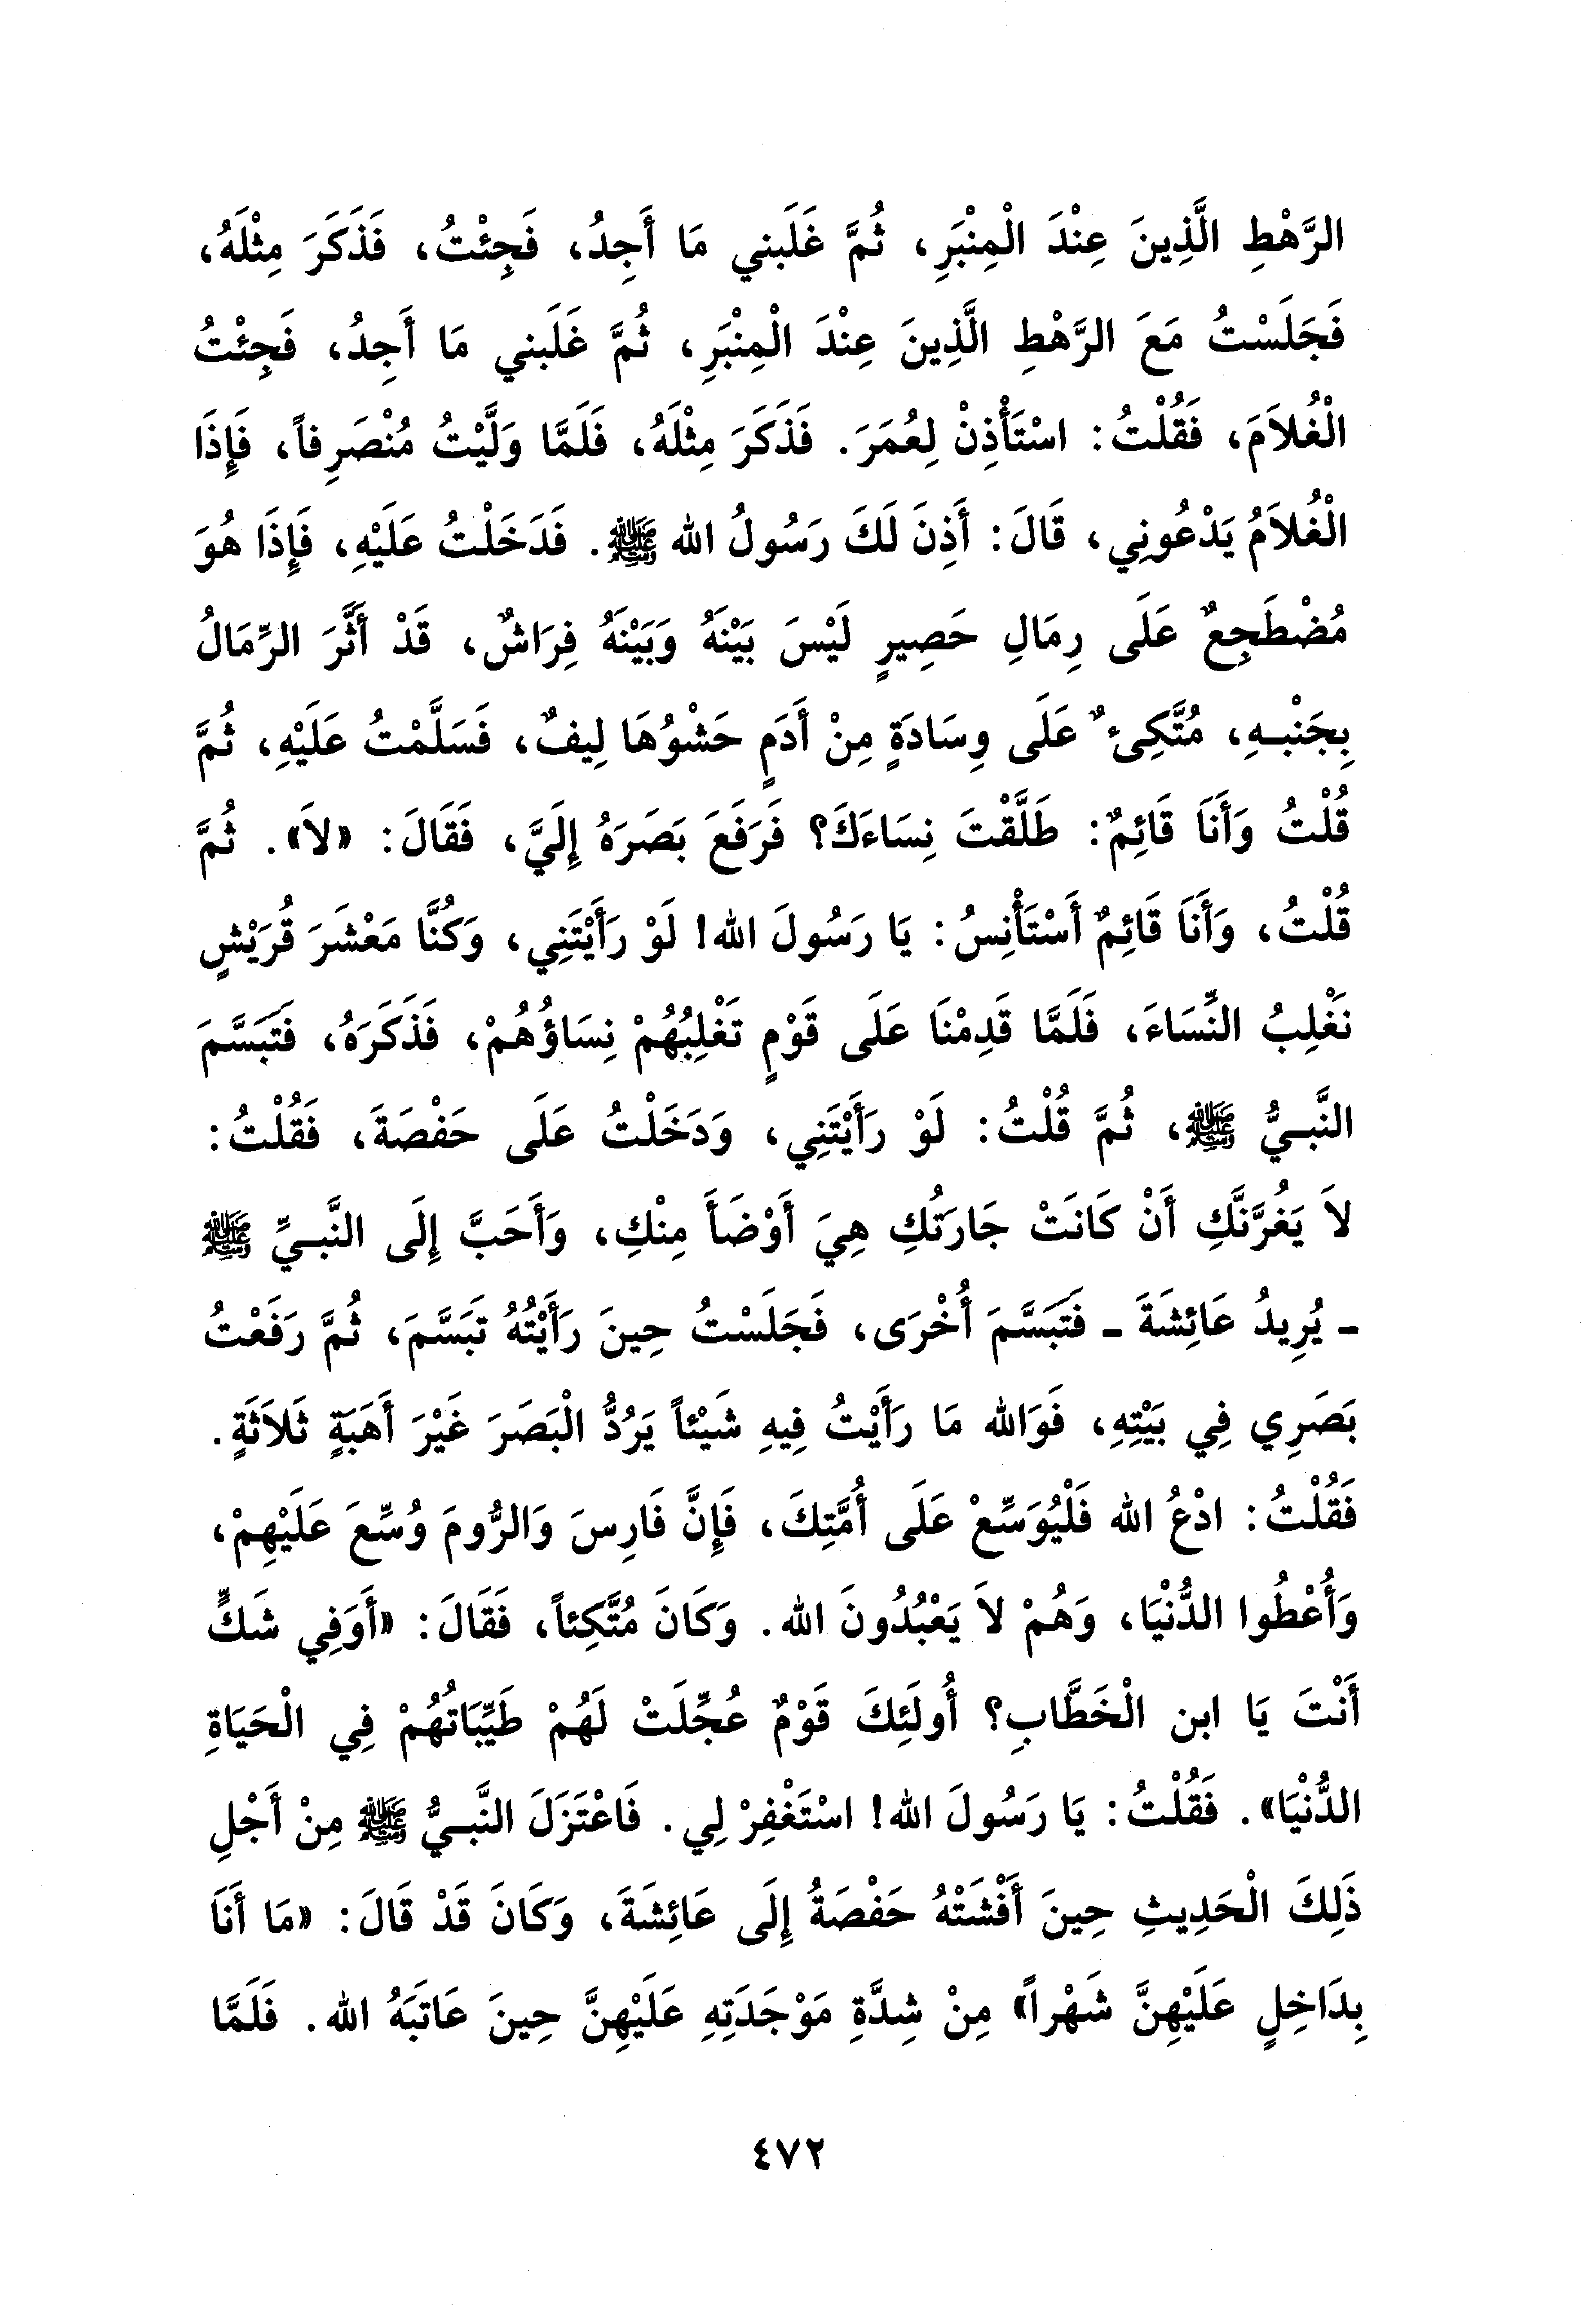 الرَّهْطِ الَّذِينَ عِنْدَ الْمِنْبَرِ، ثُمَّ غَلَبني مَا أَجِدُ، فَجِئْتُ، فَذَكَرَ مِثْلَهُ،
فَجَلَسْتُ مَعَ الرَّهْطِ الَّذِينَ عِنْدَ الْمِنْبَرِ، ثُمَّ غَلَبني مَا أَجِدُ، فَجِئْتُ
الْغُلاَمَ، فَقُلْتُ: اسْتَأْذِنْ لِعُمَرَ. فَذَكَرَ مِثْلَهُ، فَلَمَّا وَلَّيْتُ مُنْصَرِفاً، فَإِذَا
الْغُلاَمُ يَدْعُونِي، قَالَ: أَذِنَ لَكَ رَسُولُ الله ﷺ. فَدَخَلْتُ عَلَيْهِ، فَإِذَا هُوَ
مُضْطَجِعٌ عَلَى رِمَالِ حَصِيرٍ لَيْسَ بَيْنَهُ وَبَيْنَهُ فِرَاشٌ، قَدْ أَثَّرَ الرِّمَالُ
بِجَنْبـِهِ، مُتَّكِىءٌ عَلَى وِسَادَةٍ مِنْ أَدَمٍ حَشْوُهَا لِيفٌ، فَسَلَّمْتُ عَلَيْهِ، ثُمَّ
قُلْتُ وَأَنَا قَائِمٌ: طَلَّقْتَ نِسَاءَكَ؟ فَرَفَعَ بَصَرَهُ إِلَيَّ، فَقَالَ: «لاَ». ثُمَّ
قُلْتُ، وَأَنَا قَائِمٌ أَسْتَأْنِسُ: يَا رَسُولَ الله! لَوْ رَأَيْتَنِي، وَكُنَّا مَعْشَرَ قُرَيْشٍ
نَغْلِبُ النِّسَاءَ، فَلَمَّا قَدِمْنَا عَلَى قَوْمٍ تَغْلِبُهُمْ نِسَاؤُهُمْ، فَذَكَرَهُ، فَتَبَسَّمَ
النَّبـيُّ ﷺ، ثُمَّ قُلْتُ: لَوْ رَأَيْتَنِي، وَدَخَلْتُ عَلَى حَفْصَةَ، فَقُلْتُ:
لاَ يَغُرَّنَّكِ أَنْ كَانَتْ جَارَتُكِ هِيَ أَوْضَأَ مِنْكِ، وَأَحَبَّ إِلَى النَّبـيِّ ﷺ
ـ يُرِيدُ عَائِشَةَ ـ فَتَبَسَّمَ أُخْرَى، فَجَلَسْتُ حِينَ رَأَيْتُهُ تَبَسَّمَ، ثُمَّ رَفَعْتُ
بَصَرِي فِي بَيْتِهِ، فَوَالله مَا رَأَيْتُ فِيهِ شَيْئاً يَرُدُّ الْبَصَرَ غَيْرَ أَهَبَةٍ ثَلاَثَةٍ.
فَقُلْتُ: ادْعُ الله فَلْيُوَسِّعْ عَلَى أُمَّتِكَ، فَإِنَّ فَارِسَ وَالرُّومَ وُسِّعَ عَلَيْهِمْ،
وَأُعْطُوا الدُّنْيَا، وَهُمْ لاَ يَعْبُدُونَ الله. وَكَانَ مُتَّكِئاً، فَقَالَ: «أَوَفِي شَكٍّ
أَنْتَ يَا ابن الْخَطَّابِ؟ أُولَئِكَ قَوْمٌ عُجِّلَتْ لَهُمْ طَيِّبَاتُهُمْ فِي الْحَيَاةِ
الدُّنْيَا». فَقُلْتُ: يَا رَسُولَ الله! اسْتَغْفِرْ لِي. فَاعْتَزَلَ النَّبـيُّ ﷺ مِنْ أَجْلِ
ذَلِكَ الْحَدِيثِ حِينَ أَفْشَتْهُ حَفْصَةُ إِلَى عَائِشَةَ، وَكَانَ قَدْ قَالَ: «مَا أَنَا
بِدَاخِلٍ عَلَيْهِنَّ شَهْراً» مِنْ شِدَّةِ مَوْجَدَتِهِ عَلَيْهِنَّ حِينَ عَاتَبَهُ الله. فَلَمَّا
٤٧٢